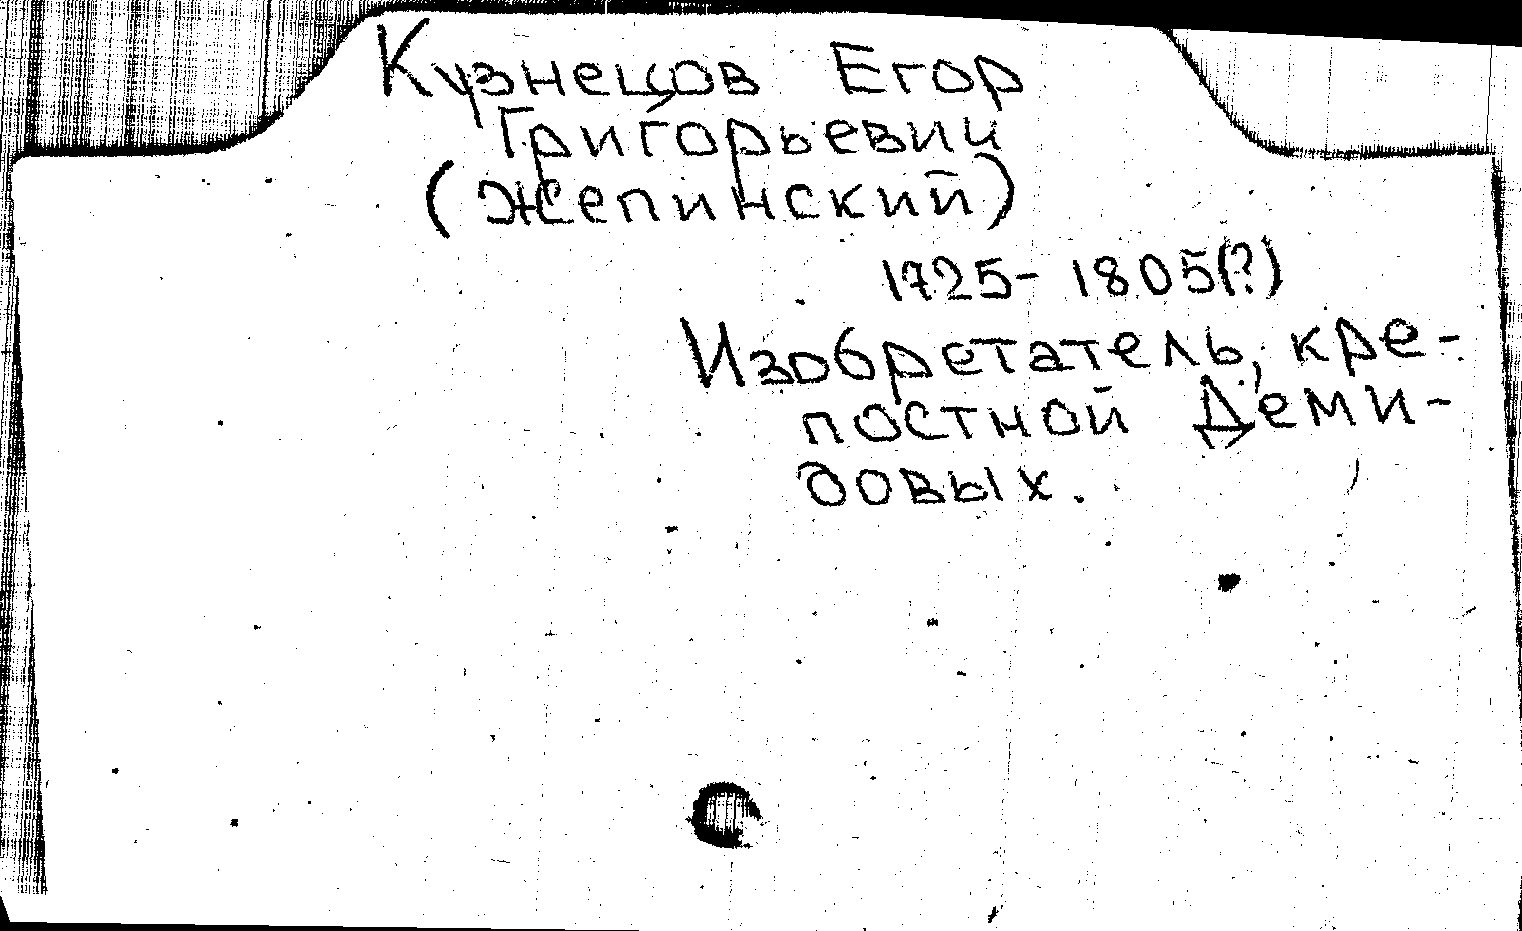 Кузнецов Егор
Григорьевич
(Жепинский)
1725-1805(?)
Изобретатель, кре-
постной Деми-
довых.